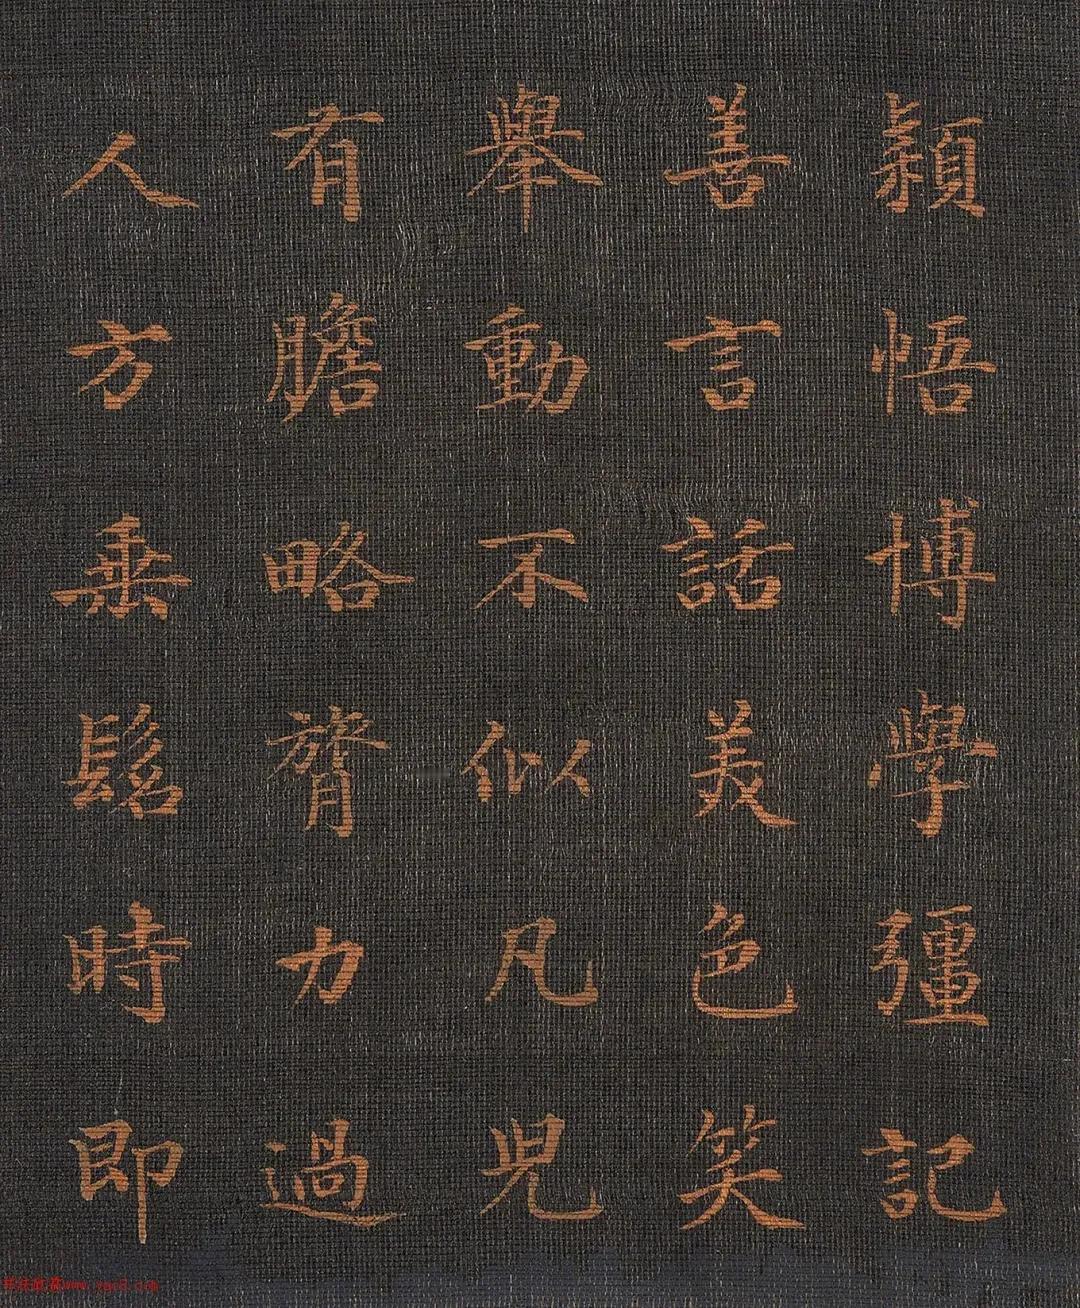 穎悟博學彊記
善言話美色笑
舉動不似凡兒
有膽略膂力過
人方垂髫時即
www.yac8.com